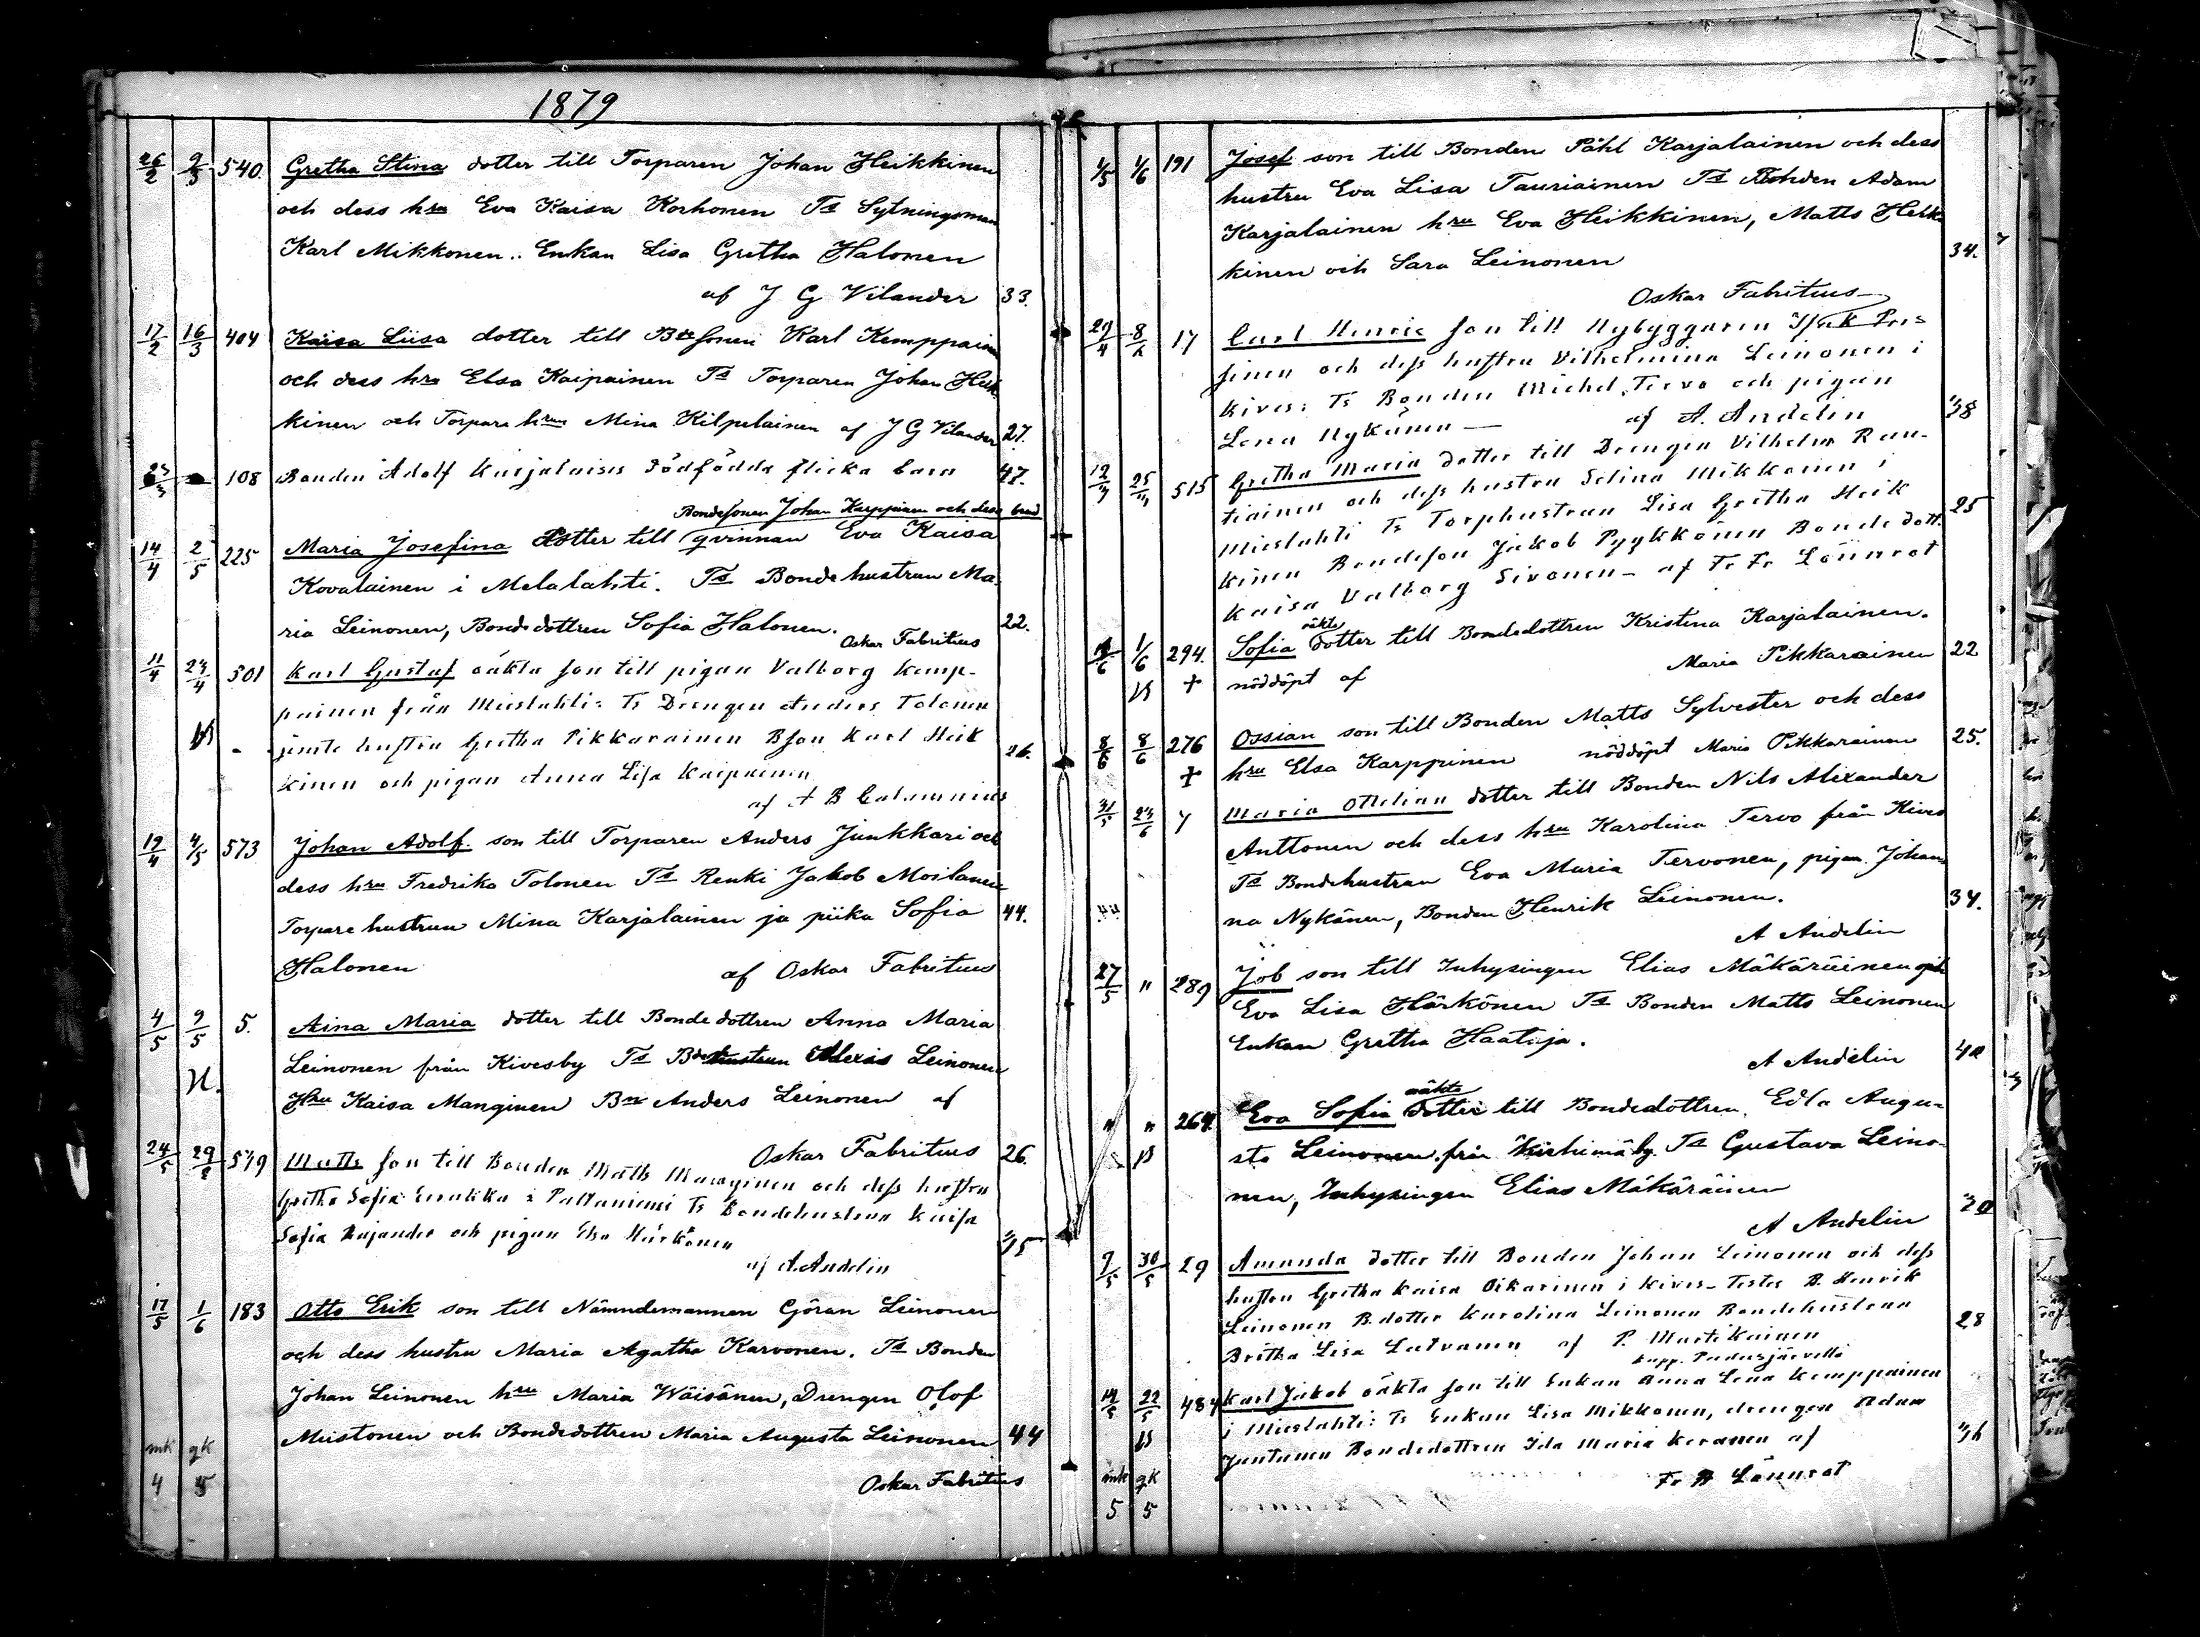 1879
26/2 9/3 540. Gretha Stina dotter till Torparen Johan Heikkinen
och dess hru Eva Kaisa Korhonen Ts Sytningsman
Karl Mikkonen.. Enkan Lisa Gretha Halonen
af J G Vilander 33.
17/2 16/3 404 Kaisa Liisa dotter till Bdesonen Karl Kemppainen
och dess hru Elsa Kaipainen Ts Torparen Johan Heik
kinen och Torpare hrun Mina Kilpelainen af J G Vilander 27.
23/3 108 Bonden Adolf Karjalaises dödfödda flicka barn 47.
Bondesonen Johan Karppinen och dess
14/4 2/5 225 Maria Josefina dotter till qvinnan Eva Kaisa
Kovalainen i Melalahti. Ts Bonde hustrun Ma
ria Leinonen, Bondedottren Sofia Halonen. 22.
Oskar Fabritius
11/4 27/4 301 Karl Gustaf oäkta son till pigan Valborg Kemp-
painen från Mieslahti: Ts Drengen Anders Tolonen
jemte hustru Gretha Pikkarainen Bson Karl Heik 26.
kinen och pigan Anna Lisa Kaipainen
af A B Calamnius
19/4 4/5 573 Johan Adolf son till Torparen Anders Junkkari och
dess hru Fredrika Tolonen Ts Renki Jakob Moilanen
Torpare hustrun Mina Karjalainen ja piika Sofia 44.
Halonen af Oskar Fabritius
4/5 9/5 5. Aina Maria dotter till Bondedottren Anna Maria
Leinonen från Kivesby Ts Alexis Leinonen
Hru Kaisa Manginen Bn Anders Leinonen af
Oskar Fabritius 26.
24/5 29/5 579 Matts son till Bonden Matts Manginen och dess hustru
Gretha Sofia i Paltaniemi Ts Bondehustrun Kaisa
Sofia Kajander och pigan Elsa Härkönen 35
af A. Andelin
17/5 1/6 183 Otto Erik son till Nämndemannen Göran Leinonen
och dess hustru Maria Agatha Karvonen. Ts Bonden
Johan Leinonen hru Maria Wäisänen, Drengen Olof
Mustonen och Bondedottren Maria Augusta Leinonen 44
Oskar Fabritius
mk qk
4 5
1/5 1/6 191 Josef son till Bonden Påhl Karjalainen och dess
hustru Eva Lisa Tauriainen Ts Bonden Adam
Karjalainen hru Eva Heikkinen, Matts Heik
kinen och Sara Leinonen 34.
Oskar Fabritius
29/4 17 Carl Henric son till Nybyggaren
sinen och dess hustru Vilhelmina Leinonen i
Kives: Ts Bonden Michel Tervo och pigan
Lena Nykänen — af A. Andelin 38
515 Gretha Maria dotter till Drengen Vilhelm Rau-
tiainen och dess hustru Selina Mikkonen i
Mieslahti Ts Torphustrun Lisa Gretha Heik 25
kinen Bondeson Jakob Pyykkönen Bondedott.
Kaisa Valborg Sivonen - af Fr Fr Lönnrot
1/6 294. Sofia oäkta dotter till Bondedottren Kristina Karjalainen.
+ nöddöpt af Maria Pikkarainen 22
8/6 8/6 276 Ossian son till Bonden Matts Sylvester och dess
+ hru Elsa Karppinen nöddöpt Maria Pikkarainen 25.
31/5 23/6 7 Maria Otteliana dotter till Bonden Nils Alexander
Anttonen och dess hru Karolina Tervo från Kives
Ts Bondehustrun Eva Maria Tervonen, pigan Johan
na Nykänen, Bonden Henrik Leinonen. 34.
A Andelin
27/5 " 289 Job son till Inhysingen Elias Mäkäräinen och
Eva Lisa Härkönen Ts Bonden Matts Leinonen
Enkan Gretha Haataja.
A Andelin 40
" " 264. Eva Sofia oäkta dotter till Bondedottren Edla Augu-
sta Leinonen från by. Ts Gustava Leino-
nen, Inhysingen Elias Mäkäräinen
A Andelin 20
9/5 30/5 29 Amanda dotter till Bonden Johan Leinonen och dess
hustru Gretha Kaisa Oikarinen i Kives- Testes B. Henrik
Leinonen B.dotter Karolina Leinonen Bondehustrun 28
Britha Lisa Latvanen af P. Martikainen
kapp. Pudasjärvellä
19/5 22/5 484 Karl Jakob oäkta son till Enkan Anna Lena Kemppainen
i Mieslahti: Ts Enkan Lisa Mikkonen, drengen Adam
Juntunen Bondedottren Ida Maria Keränen af 36
Lönnrot
mk qk
5 5